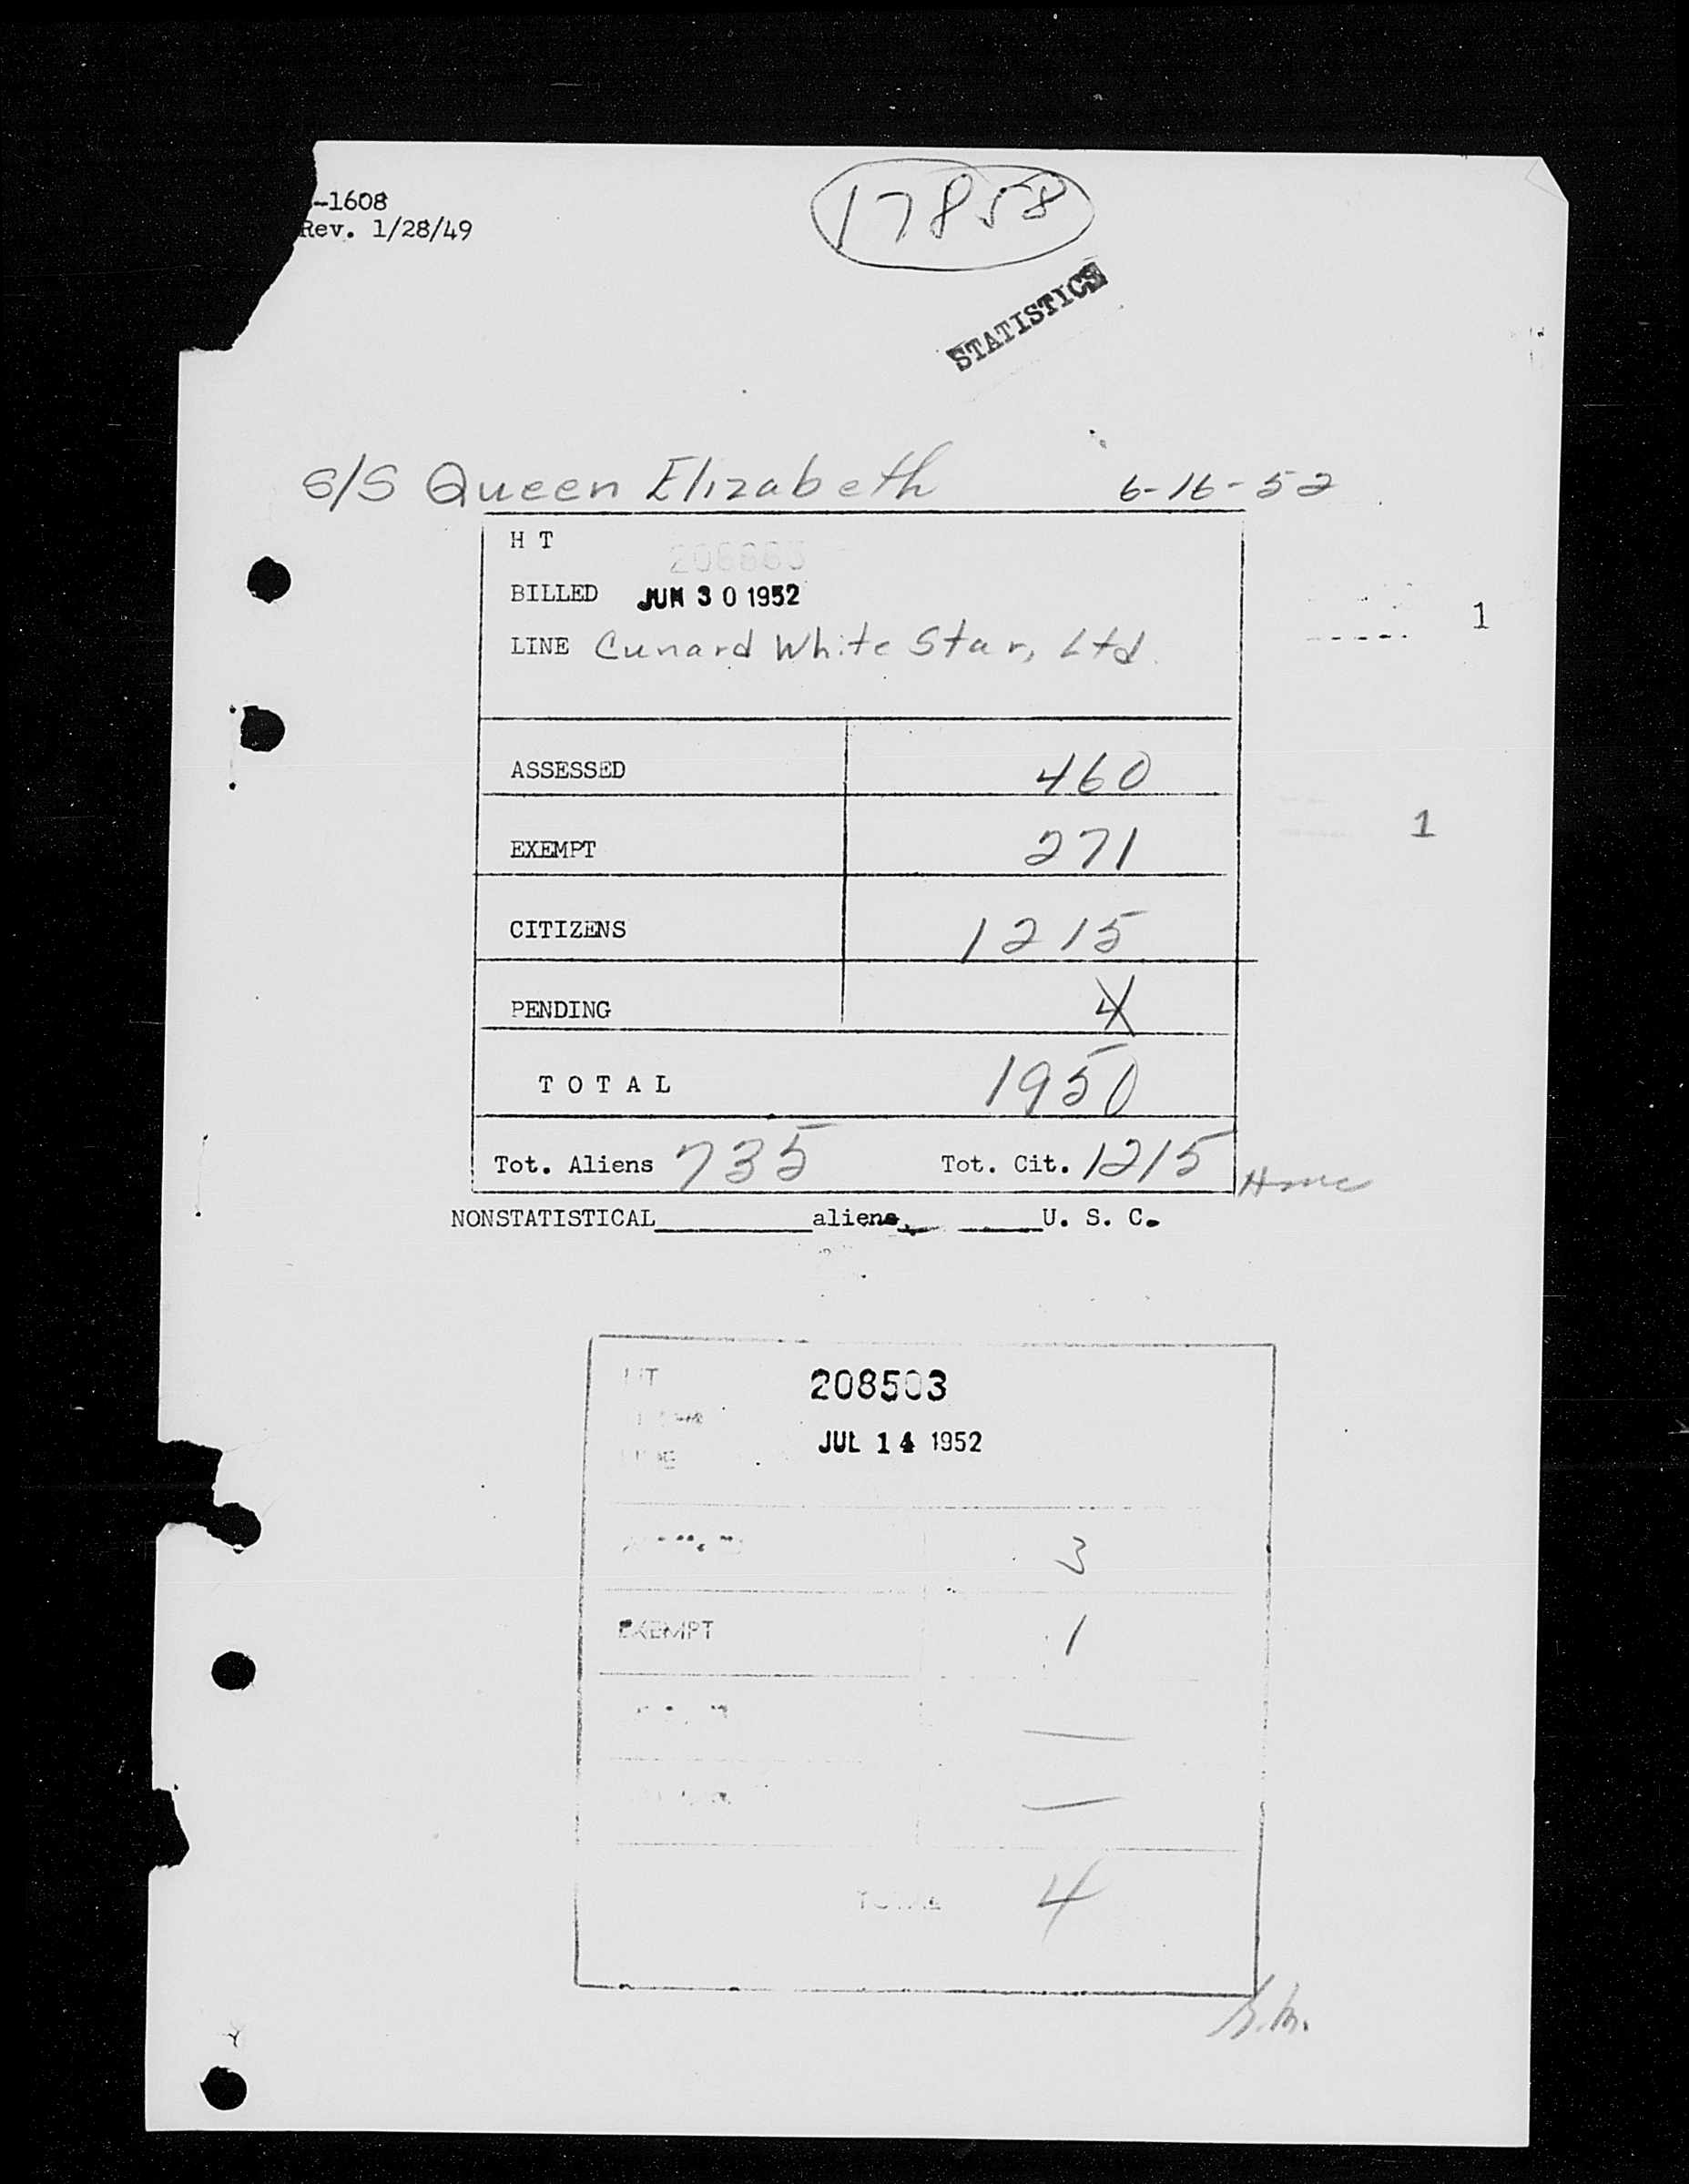 -1608
Rev. 1/28/49
17858
STATISTICS
S/S Queen Elizabeth 6-16-52
H T
BILLED JUN 30 1952
LINE Cunard White Star, Ltd.
1
ASSESSED 460
EXEMPT 271
1
CITIZENS 1215
PENDING 4
TOTAL 1950
Tot. Aliens 735 Tot. Cit. 1215
NONSTATISTICAL aliens, U. S. C.
HT 208503
JUL 14 1952
3
EXEMPT 1
TOTAL 4